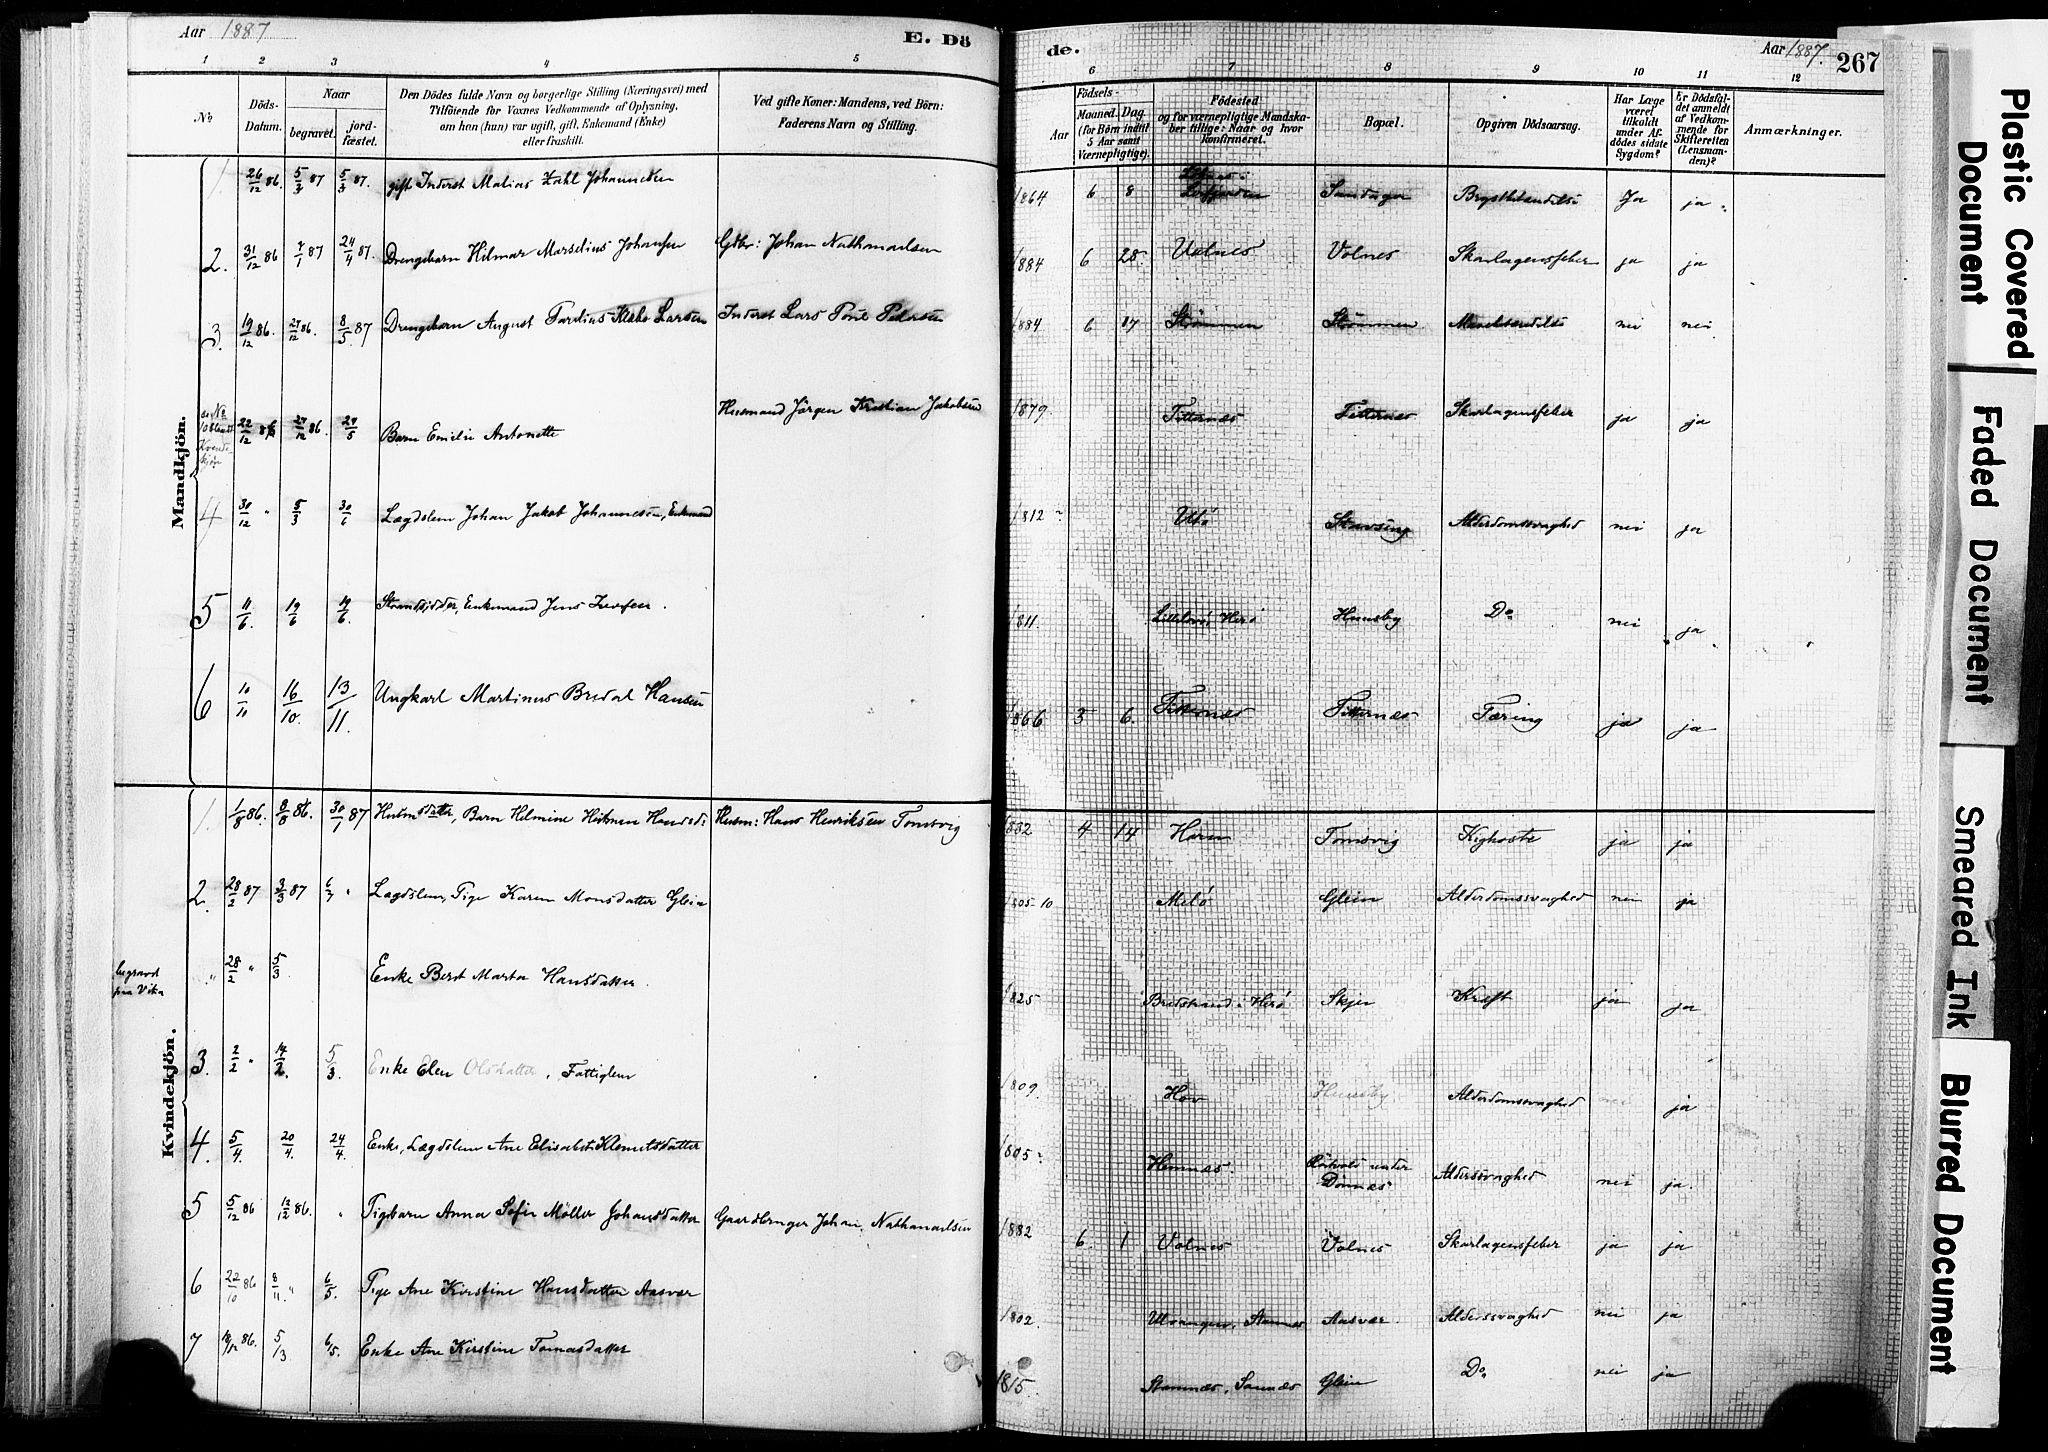 Aar 1887
E. Dö
de.
Aar 1887.
267
1 2 3 4 5 6 7 8 9 10 11 12
No
Döds-Datum.
Naar
begravet.
jordfæstet.
Den Dödes fulde Navn og borgerlige Stilling (Næringsvei) med
Tilföiende for Voxnes Vedkommende af Oplysning,
om han (hun) var ugift, gift, Enkemand (Enke)
eller fraskilt.
Ved gifte Koner: Mandens, ved Börn:
Faderens Navn og Stilling.
Födsels-
Aar
Maaned. Dag
(for Börn indtil
5 Aar samt
Værnepligtige).
Födested
og for værnepligtige Mandska-
ber tillige: Naar og hvor
konfirmeret.
Bopæl.
Opgiven Dödsaarsag.
Har Læge
været
tilkaldt
under Af-
dödes sidste
Sygdom?
Er Dödsfal-
det anmeldt
af Vedkom-
mende for
Skifteretten
(Lensman-
den)?
Anmærkninger.
Mandkjön.
1. 26/12 86. 5/3 87 5/3 87. gift Inderst Matias Zahl Johannesen 1864 6 8 Brystbetændelse Ja ja
2. 31/12 86 7/1 87 24/4 87. Drengebarn Hilmar Marselius Johansen Gdbr: Johan Nathanaelsen 1884 6 28 Valnes Volnes Skarlagensfeber ja ja
3. 19/12 86. 27/12 86. 8/5 87 Drengebarn August Larsen Inderst Lars Tone Pedersen 1884 6 17 Strømmen Strømmen nei nei
22/12 86 27/12 86. 27/5 Barn Emilie Antonette Husmand Jørgen Kristian Jakobsen 1879. Titternes Titternes Skarlagensfeber ja ja
4 30/12 " 5/3 30/6 Lægdslem Johan Jakob Johannesen, Enkemand 1812 Alderdomssvaghed nei ja
5 11/6. 19/6 19/6. Strandsidder, Enkemand Jens 1811. Herø Huusby Do. nei ja
6 10/10 16/10. 13/11. Ungkarl Martinus Bredal Hansen 1866 3 6. Titternes Titternes Tæring ja ja
Kvindekjön.
1. 1/8 86. 8/8 86. 30/1 87 Husmdatter, Barn Helmine Hansd: Husm: Hans Henriksen Tomsvig 1882 4 14 Havn Tomsvig Kighoste ja ja
2. 28/2 87 3/3 87 6/7 " Lægdslem, Pige Karen Monsdatter Glein 1805-10 Melø Glein Alderdomssvaghed nei ja
begravet
paa Vika
" 28/2 " 5/3 Enke Berit Marta Hansdatter. 1825 Bredstrand i Herø Skjei Kræft ja ja
3. 2/2 " 14/2. 5/3. Enke Elen Olsdatter, Fattiglem 1809 Hov Huusby Alderdomssvaghed nei ja
4. 5/4. 20/4. 24/4. Enke, Lægdslem Ane Elisabet Klemetsdatter 1805 Hemnæs. under Dønnæs Alderssvaghed nei ja.
5 5/12 86 12/12 86. " Pigebarn Anna Sofie Møller Johansdatter Gaardbruger Johan Nathanaelsen 1882 6. 1 Volnes Volnes Skarlagensfeber ja ja
6 22/10 86 8/11. " 6/5. Pige Ane Kirstine Hansdatter Aasvær 1802. Aasvær. Alderssvaghed nei ja
7 86. 5/3 6/5. Enke Ane Kirstine Tomasdatter 1815. Stamnæs, Sannæs Glein Do. nei ja
Plastic Covered Document
Faded Document
Smeared Ink
Blurred Document